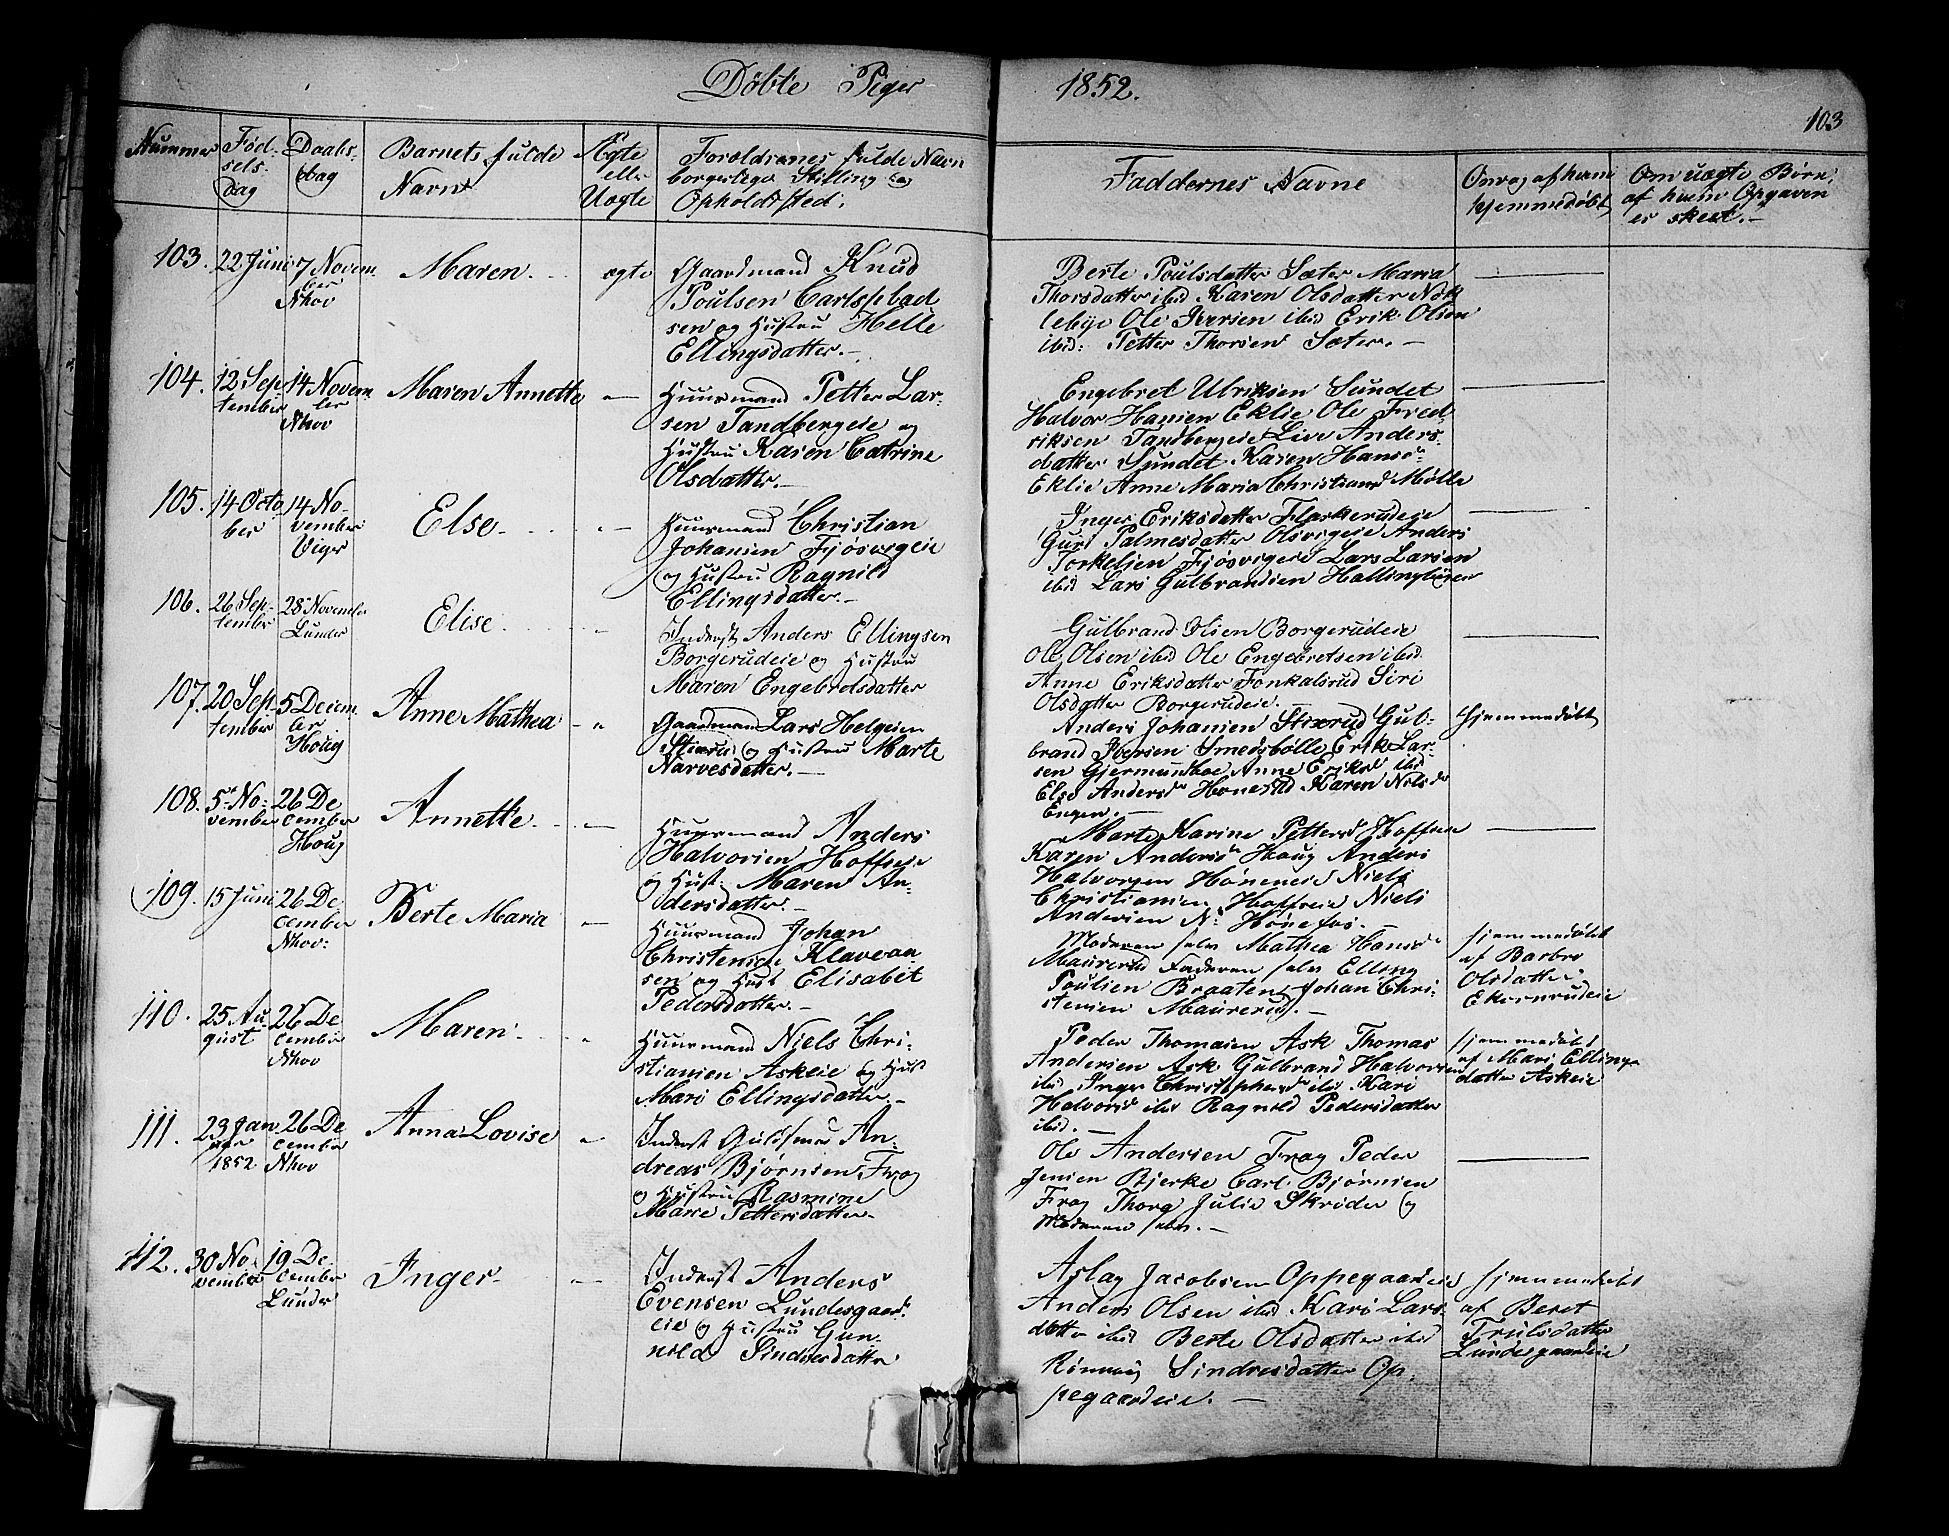 Døbte Piger 1852.
103
Nummer
Fød-
sels-
dag
Daabs-
dag
Barnets fulde
Navn
Ægte
eller
Uægte
Forældrenes fulde Navn
borgerlige Stilling og
Opholdssted.
Faddernes Navne
Om og af hvem
hjemmedøbt
Om uægte Børn,
af hvem Opgaven
er skeet.-
103. 22 Juni 7 Novem
ber
Nhov
Maren
ægte
Gaardmand Knud
Poulsen Carlspbad
sen og Hustru Helle
Ellingsdatter.-
Berte Poulsdatter Sæter Maria
Thorsdatter ibid Karen Olsdatter Nøk
lebye Ole Iversen ibid Erik Olsen
ibid: Petter Thorsen Sæter.-
104. 12 Sep
tember
14 Novem
ber
Nhov
Maren Annette
Huusmand Petter Lar-
sen Tandbergeie og
Hustru Karen Catrine
Olsdatter.-
Engebret Ulriksen Sundet
Halvor Hansen Eklie Ole Fred
riksen Tandbergeie Live Anders-
datter Sundet Karen Hansd
Eklie Anne Maria Christiansd Mølle
105. 14 Octo
ber
14 No-
vember
Viger
Else
Huusmand Christian
Johansen Fjøsvigeie
og Hustru Ragnild
Ellingsdatter.-
Inger Eriksdatter Flaskerudeie
Guri Palmesdatter Olsvigeie Anders
Torkelsen Fjøsvigeie Lars Larsen
ibid Lars Gulbrandsen Hallingbyeen
106. 26 Sep-
tember
28 November
Lunder
Elise
Inderst Anders Ellingsen
Borgerudeie og Hustru
Maren Engebretsdatter
Gulbrand Olsen Borgerudeie
Ole Olsen ibid Ole Engebretsen ibid.
Anne Eriksdatter Fonkalsrud Siri
Olsdatter Borgerudeie.
107. 20 Sep
tember
5 Decem
ber
Houg
Anne Mathea
Gaardmand Lars Helgesen
og Hustru Marte
Narvesdatter.-
Anders Johansen Stixrud Gul-
brand Iversen Smedsbølle Erik Lar-
sen Gjermundboe Anne Eriksd ibid
Else Andersd Hønerud Karen Nilsd
Enger.-
Hjemmedøbt
108. 5te No-
vember
26 De
cember
Houg
Annette
Huusmand Anders
Halvorsen Hoffseie
og Hust. Maren An-
dersdatter.-
Marte Karine Pettersd Hoffseie
Karen Andersd Houg Anders
Halvorsen Høneneie Niels
Christiansen Hoffseie Niels
Andersen N: Hønefos.
109. 15 Juni 26 De
cember
Nhov:
Berte Maria
Huusmand Johan
Christensen Klaveaa-
sen og Hust Elisabet
Pedersdatter.-
Moderen selv Mathea Hansd
Maurerud Faderen selv Elling
Poulsen Braaten Johan Chri-
stensen Maurerud.-
hjemmedøbt
af Barbro
Olsdatter
Ekornrudeie
110. 25 Au
gust
26 De
cember
Nhov
Maren
Huusmand Niels Chri-
stiansen Askeie og Hust
Mari Ellingsdatter.-
Peder Thomasen Ask Thomas
Andersen Ask Gulbrand Halvorsen
ibid Inger Christophersd ibid Kari
Halvorsd ibid Ragnild Pedersdatter
ibid.-
hjemmedøbt
af Mari Ellings-
datter Askeie
111. 23 Jan
uar
1852
26 De
cember
Nhov
Anna Lovise
Inderst Guldsmed An-
dreas Bjørnsen Frog
og Hustru Rasmine
Marie Pettersdatter-
Ole Andersen Frog Peder
Jensen Bjerke Carl Bjørnsen
Frog Thora Julie Skrøder og
Moderen selv.-
112. 30 No-
vember
19 De-
cember
Lunder
Inger
Inderst Anders
Evensen Lundesgaard
eie og Hustru Gun-
nild Sindresdatter
Aslag Jacobsen Oppegaardeie
Anders Olsen ibid Kari Lars
datter ibid Berte Olsdatter ibid
Rønnaug Sindresdatter Op-
pegaardeie.-
hjemmedøbt
af Beret
Trulsdatter
Lundesgaardeie